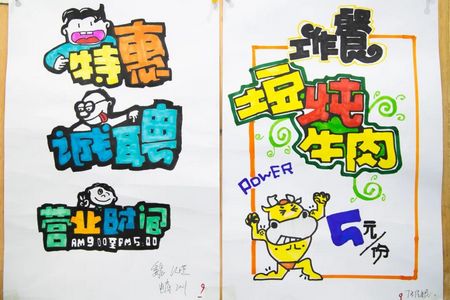 特惠
诚聘
营业时间
AM9:00至PM5:00
9
工作餐
土豆炖
牛肉
POWER
5元/份
9